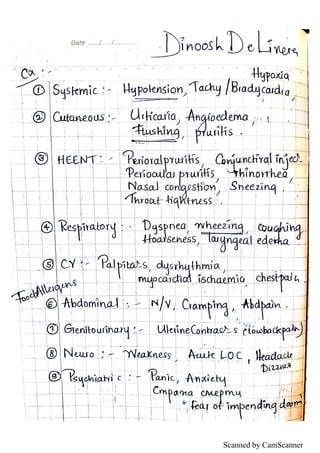 Date: ..../..../....
Dinoosh DeLinera
Hypoxia
Cx :-
① Systemic :- Hypotension, Tachy/Bradycardia,
② Cutaneous :- Urticaria, Angioedema,
Flushing, pruritis.
③ HEENT :- Perioral pruritis, Conjunctival inject.
Perioculai pruritis, rhinorrhea,
Nasal congestion, Sneezing.
Throat tightness.
④ Respiratory :- Dyspnea, wheezing, coughing
Hoarseness, laryngeal edema.
⑤ CV :- Palpitat.s, dysrhythmia,
myocardial ischaemia, chestpain.
Food Allergens
⑥ Abdominal :- N/V, Cramping, Abdpain.
⑦ Genitourinary :- Uterine Contract.s (lowbackpain)
⑧ Neuro :- Weakness, Acute LOC, Headache
Dizziness
⑨ Psychiatric :- Panic, Anxiety
* fear of impending doom
Scanned by CamScanner